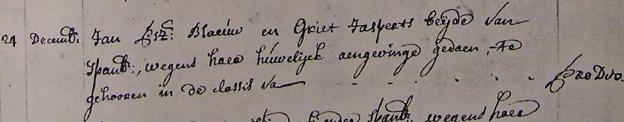 24 Decemb: Jan Psz: Blaeuw en Griet Jaspers beyde van
Spanb:, wegens haer huwelijck aengevinge gedaen, te
gehooren in de classis va Pro Deo.
wegens haer